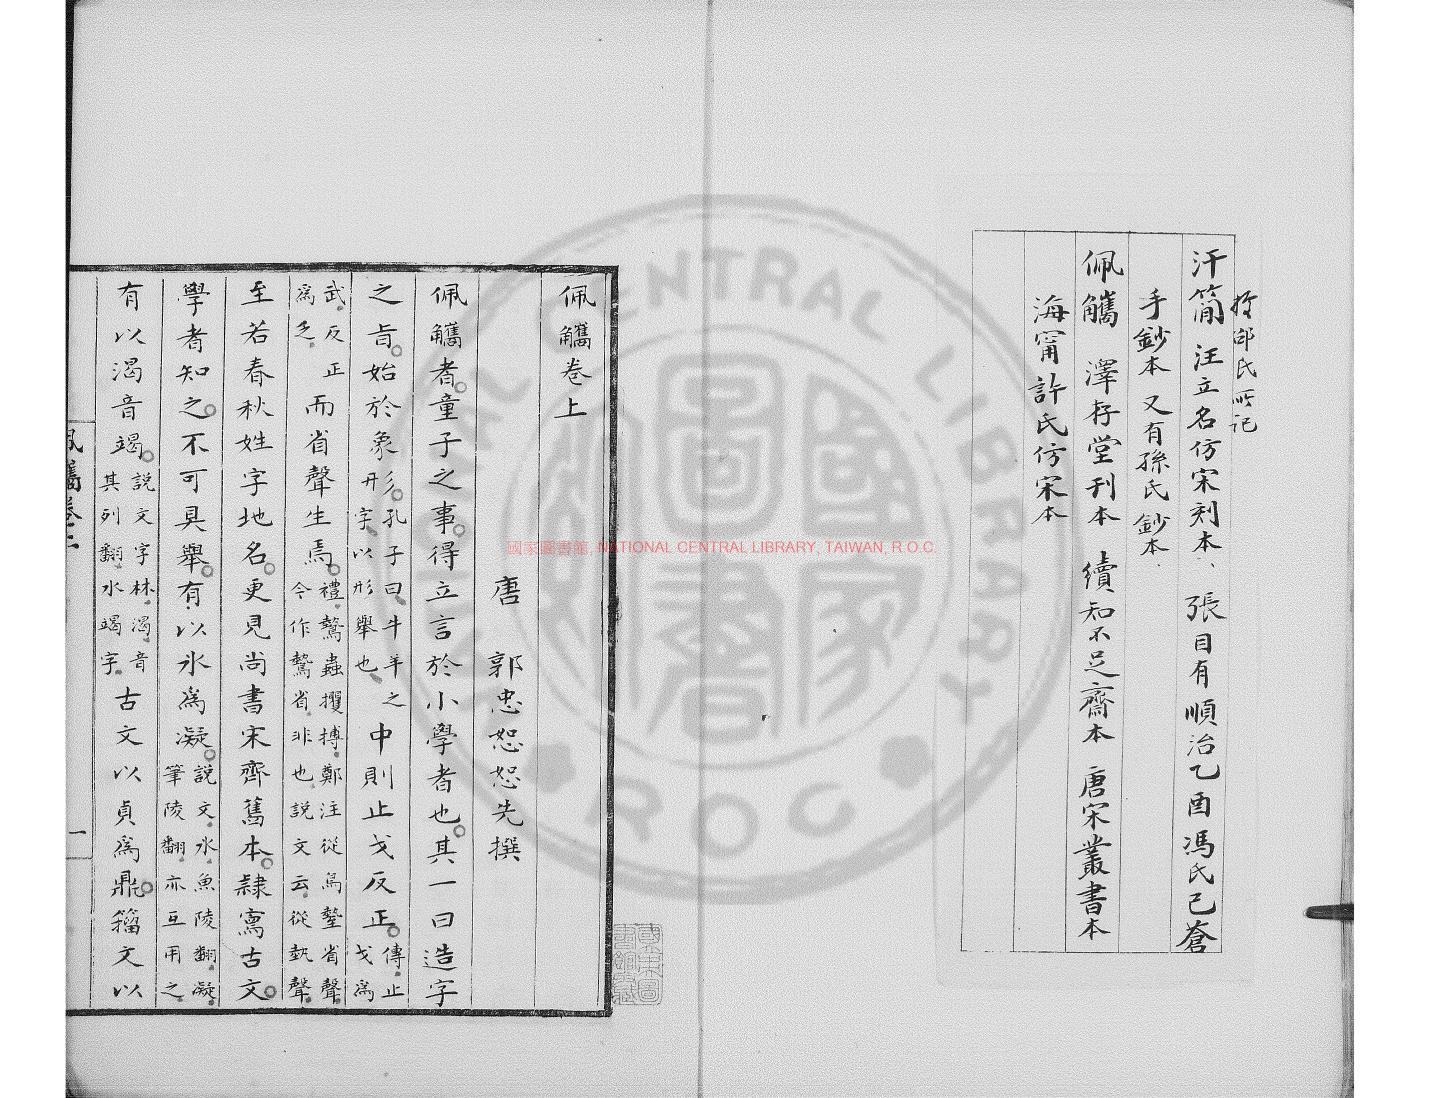 汗簡 汪立名仿宋刻本、 張目有順治乙酉馮氏己蒼
手鈔本 又有孫氏鈔本.
佩觿 澤存堂刊本 續知不足齋本 唐宋叢書本
海甯許氏仿宋本
佩觿卷上
唐 郭忠恕恕先撰
佩觿者童子之事得立言於小學者也其一曰造字
之旨始於象形孔子曰牛羊之
冊字以形舉也中則止戈反正傳止
戈為
武反正
為乏而省聲生焉禮鷙蟲攫搏鄭注從鳥墊省聲
今作鷙省非也說文云從執聲
至若春秋姓字地名更見尚書宋齊舊本隸寫古文
學者知之不可具舉有以氷為凝說文水魚陵翻凝
筆陵翻亦互用之
有以渴音竭說文字林渴音
其列翻水竭字古文以貞為鼎籀文以
一
國家圖書館, NATIONAL CENTRAL LIBRARY, TAIWAN, R.O.C.